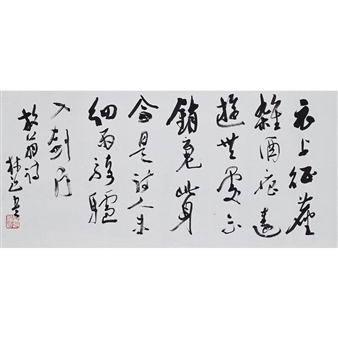 衣上征塵
雜酒痕遠
遊無處不
銷魂此身
合是詩人未
細雨騎驢
入劍門
放翁詩
書